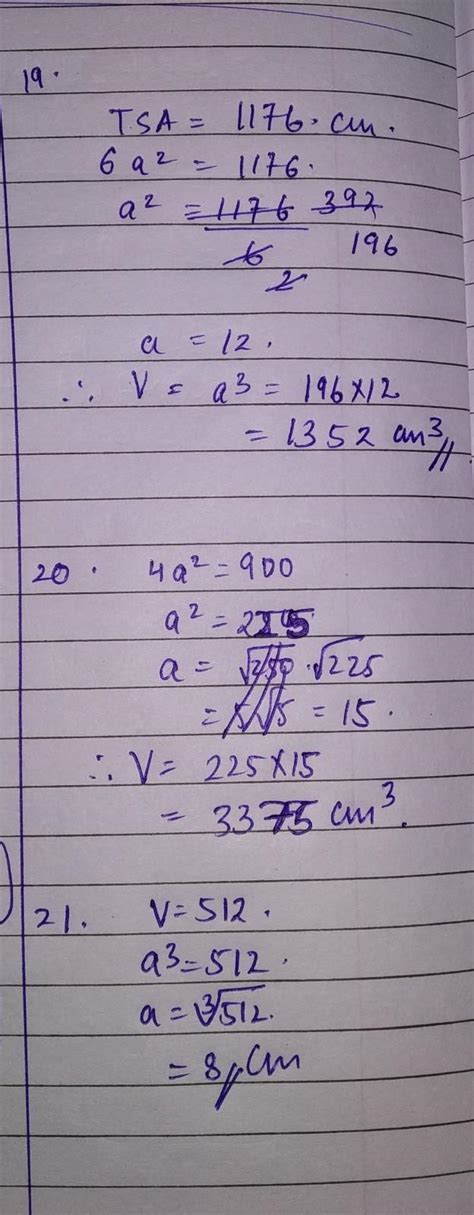 19.
TSA = 1176. cm.
6a² = 1176.
a² = 1176 392
6 196
2
a = 12.
∴ V = a³ = 196×12
= 1352 cm³//
20. 4a² = 900
a² = 225
a = √250 . √225
= 5√15 = 15.
∴ V = 225×15
= 3375 cm³.
21. V = 512.
a³ = 512.
a = ³√512.
= 8 cm